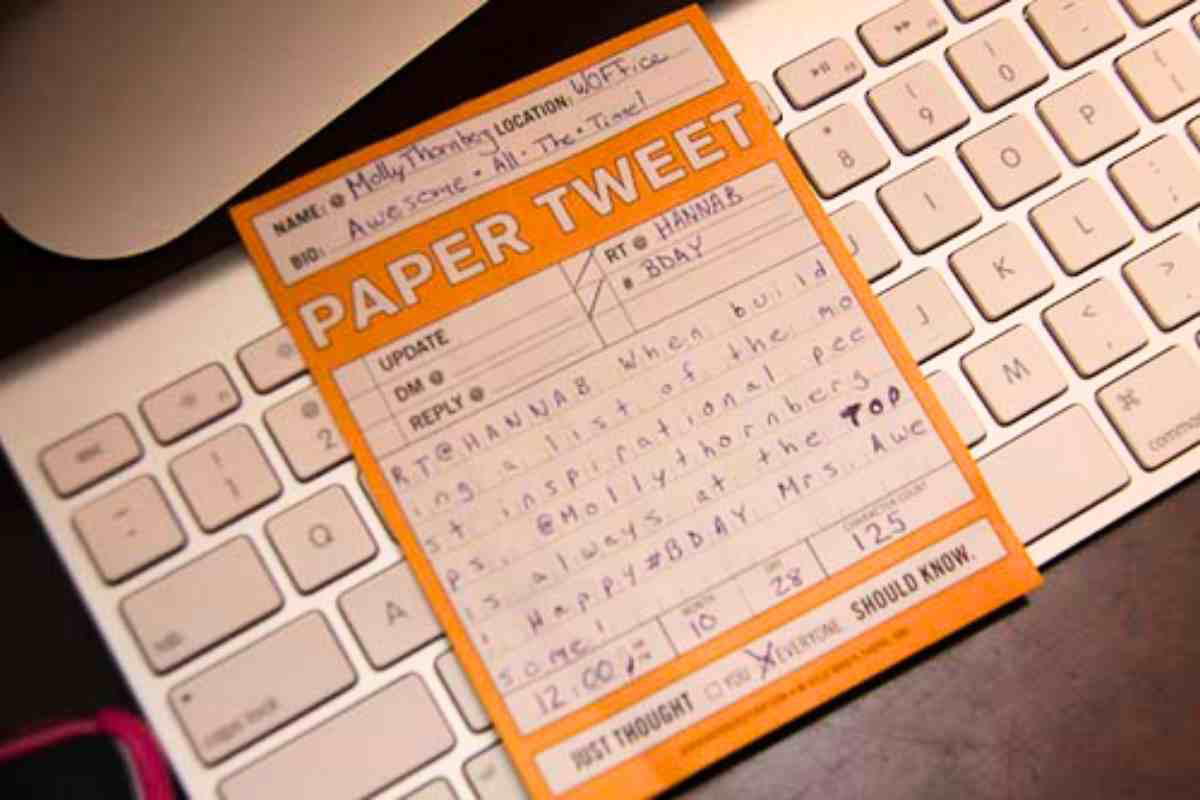 NAME: @ MollyThornberg LOCATION: WOFFice
BIO: Awesome • All • The • Time!
PAPER TWEET
UPDATE
DM @
REPLY @
RT @ HANNAB
# BDAY
RT@HANNAB When build
ing a list of the mo
st inspirational pee
ps. @Mollythornberg
is always at the TOP
. Happy #BDAY Mrs. Awe
some!
12:00
MONTH 10
28
CHARACTER COUNT 125
JUST THOUGHT YOU X EVERYONE SHOULD KNOW.
esc
2
1
Q
A
8
9
0
I
O
P
U
J
K
L
M
tab
caps lock
⌘